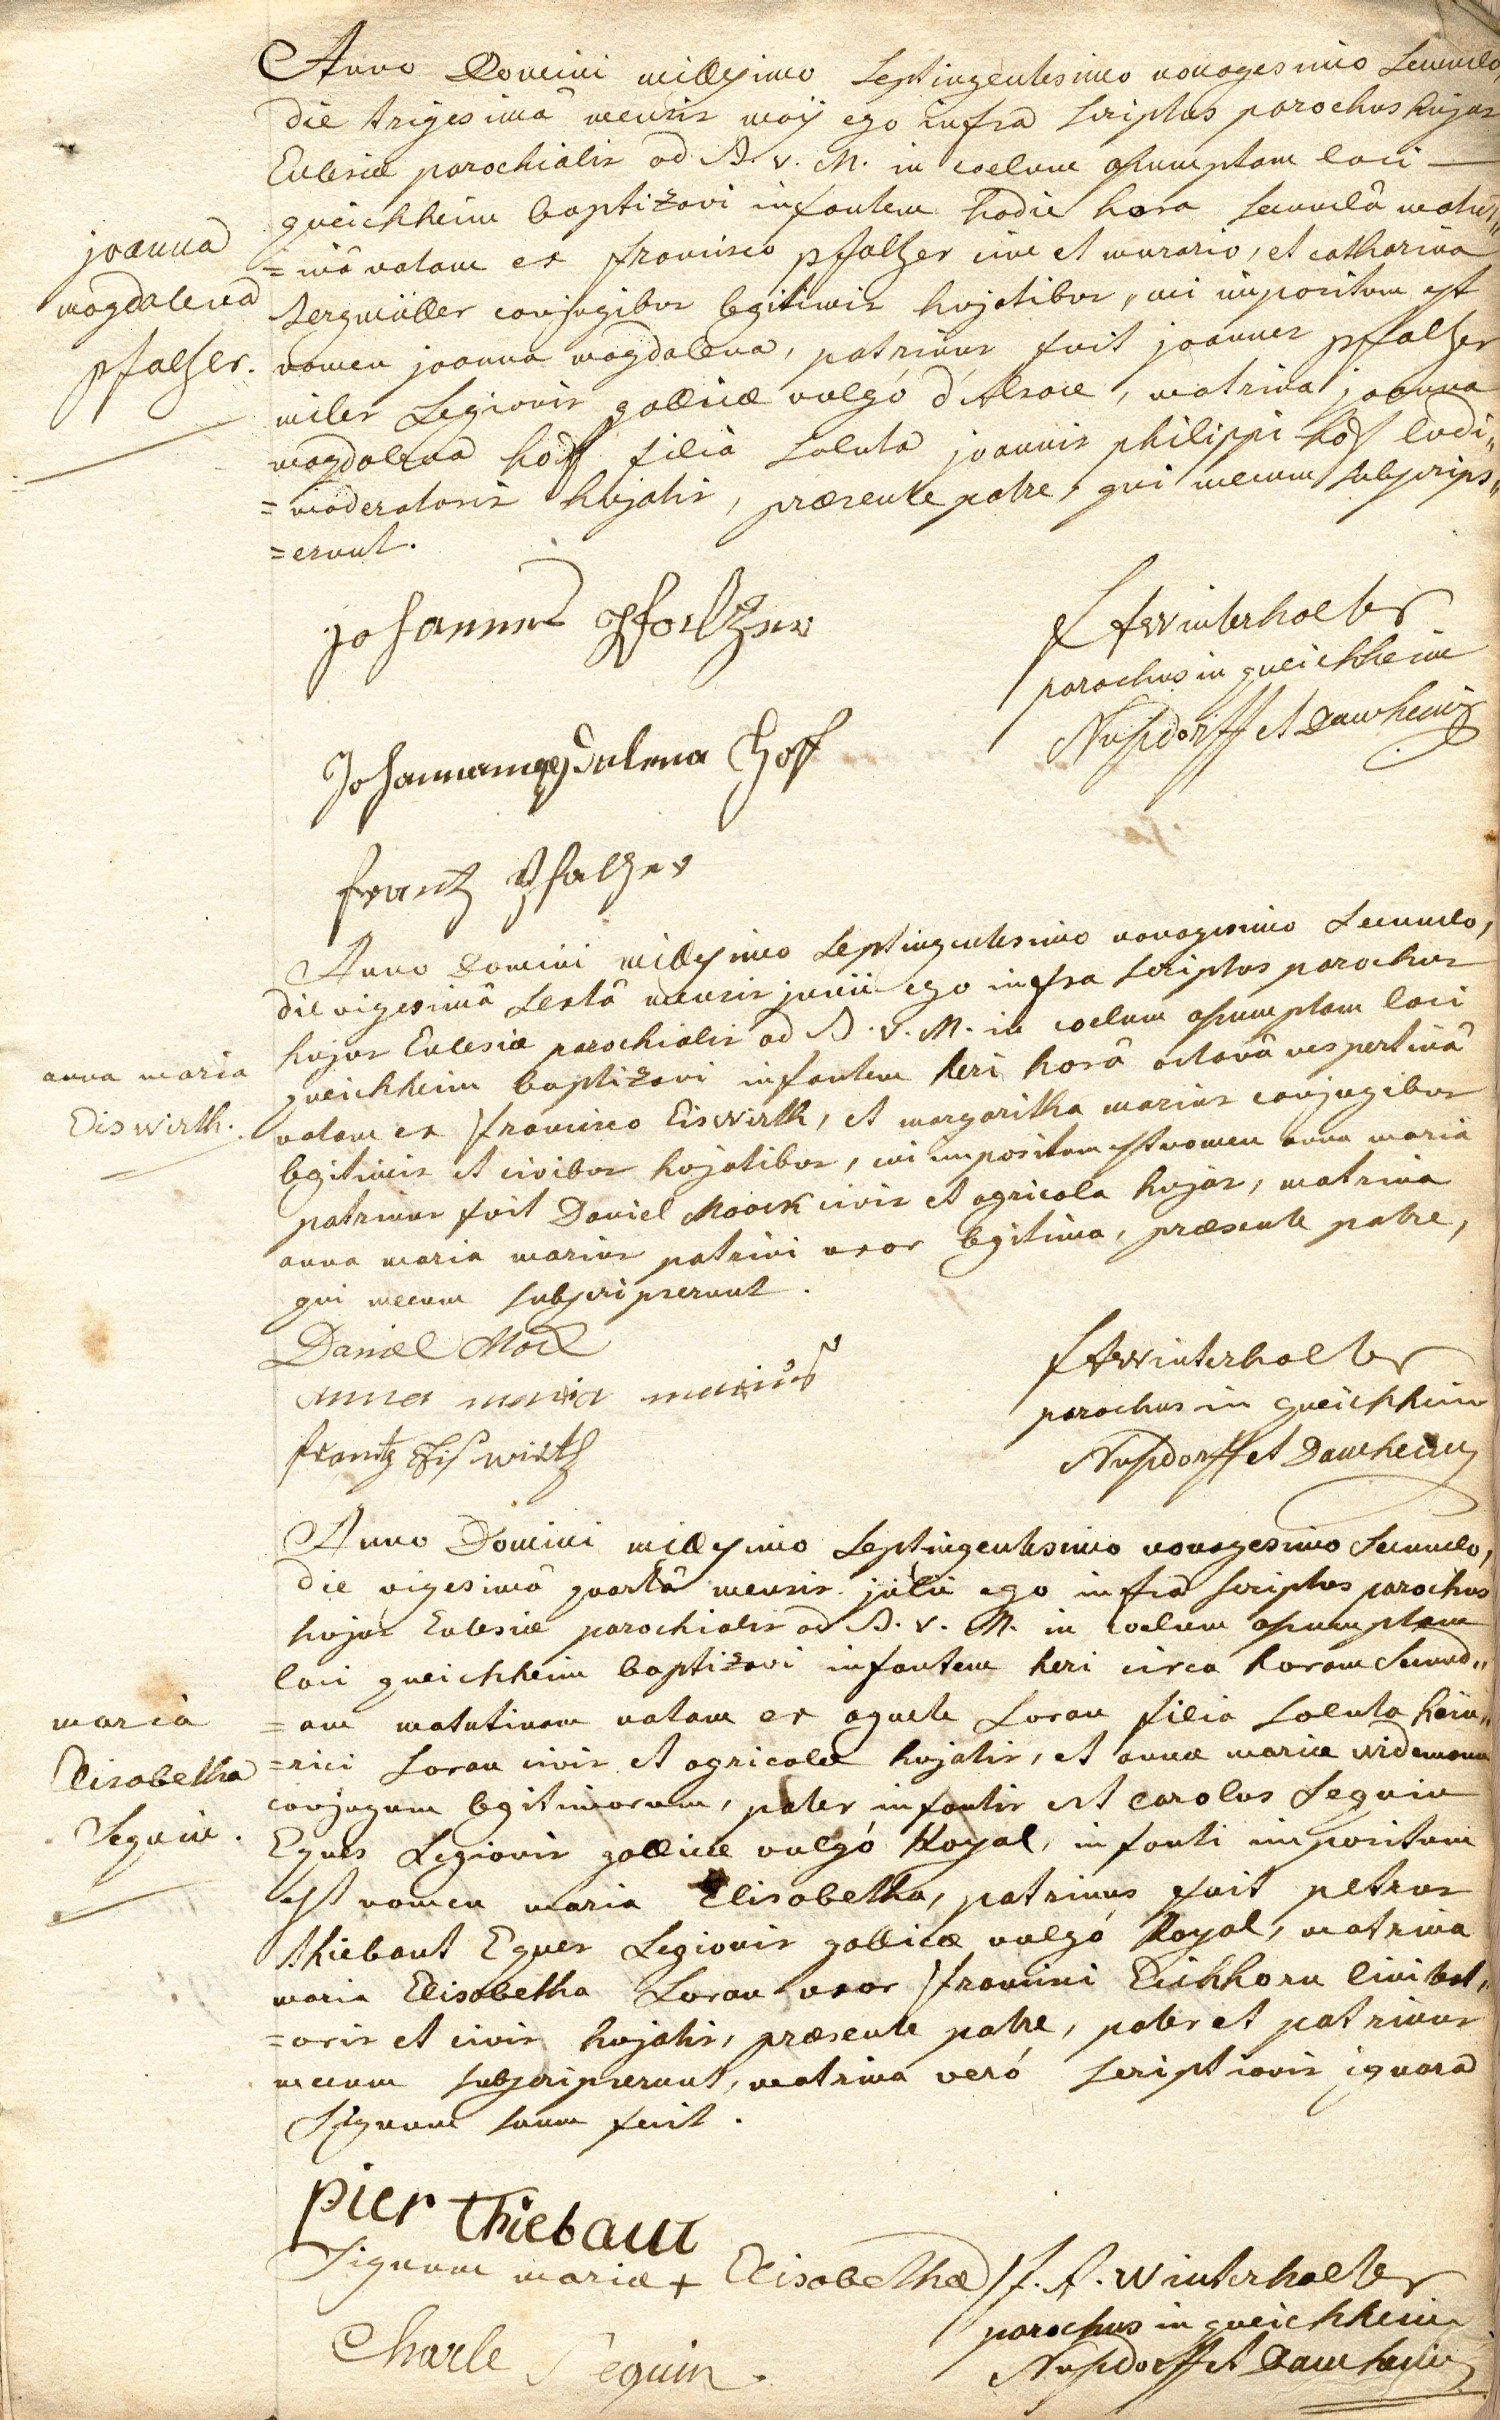 Anno Domini millesimo Septingentesimo nonagesimo Secundo,
die trigesimâ mensis maij ego infra scriptus parochus hujus
Ecclesiæ parochialis ad B. v. M. in coelum assumptam loci —
queichheim baptizavi infantem hodie hora secundâ matut„
joanna
= inâ natam ex francisco pfaltzer cive et murario, et catharina
magdalena
bergmüller conjugibus legitimis hujatibus, cui impositum est
pfaltzer.
nomen joanna magdalena, patrinus fuit joannes pfaltzer
miles Legionis gallicæ vulgó d'Alsace, matrina joanna
magdalena hoff filia soluta joannis philippi hoff ludi„
= moderatoris hujatis, præsente patre, qui mecum subscrips„
= erunt.
Johannes Pfaltzer
F A Winterhalter
parochus in queichheim
Nussdorff et Damheim
Johannamagdalena Hoff
frantz Pfaltzer
Anno Domini millesimo Septingentesimo nonagesimo Secundo,
die vigesimâ Sextâ mensis junii ego infra scriptus parochus
hujus Ecclesiæ parochialis ad B. v. M. in coelum assumptam loci
anna maria
queichheim baptizavi infantem heri horâ octavâ vespertinâ
Eiswirth.
natam ex francisco Eiswirth, et margaritha marius conjugibus
legitimis et civibus hujatibus, cui impositum est nomen anna maria
patrinus fuit Daniel Moock civis et agricola hujas, matrina
anna maria marius patrini uxor legitima, præsente patre,
qui mecum subscripserunt.
Daniel Mock
anna maria marius
frantz Eiswirth
F A Winterhalter
parochus in queichheim
Nussdorff et Damheim
Anno Domini millesimo Septingentesimo nonagesimo Secundo,
die vigesimâ quartâ mensis julii ego infra scriptus parochus
hujus Ecclesiæ parochialis ad B. v. M. in coelum assumptam
loci queichheim baptizavi infantem heri circa horam Secund„
maria
= am matutinam natam ex agnete Loran filia soluta hein„
Elisabetha
= rici Loran civis et agricolæ hujatis, et annæ mariæ widemann
Seguin.
conjugum legitimorum, pater infantis est carolus Seguin
Eques Legionis gallicæ vulgó Royal, infanti impositum
est nomen maria Elisabetha, patrinus fuit petrus
thiebaut Eques Legionis gallicæ vulgó Royal, matrina
maria Elisabetha Loran uxor francisci Eichhorn
= oris et civis hujatis, præsente patre, pater et patrinus
mecum subscripserunt, matrina veró scriptionis ignara
Signum suum fecit.
Pier thiebaut
Signum mariæ + Elisabethæ
F. A. Winterhalter
parochus in queichheim
Nussdorff et Damheim
Charle Sequin.